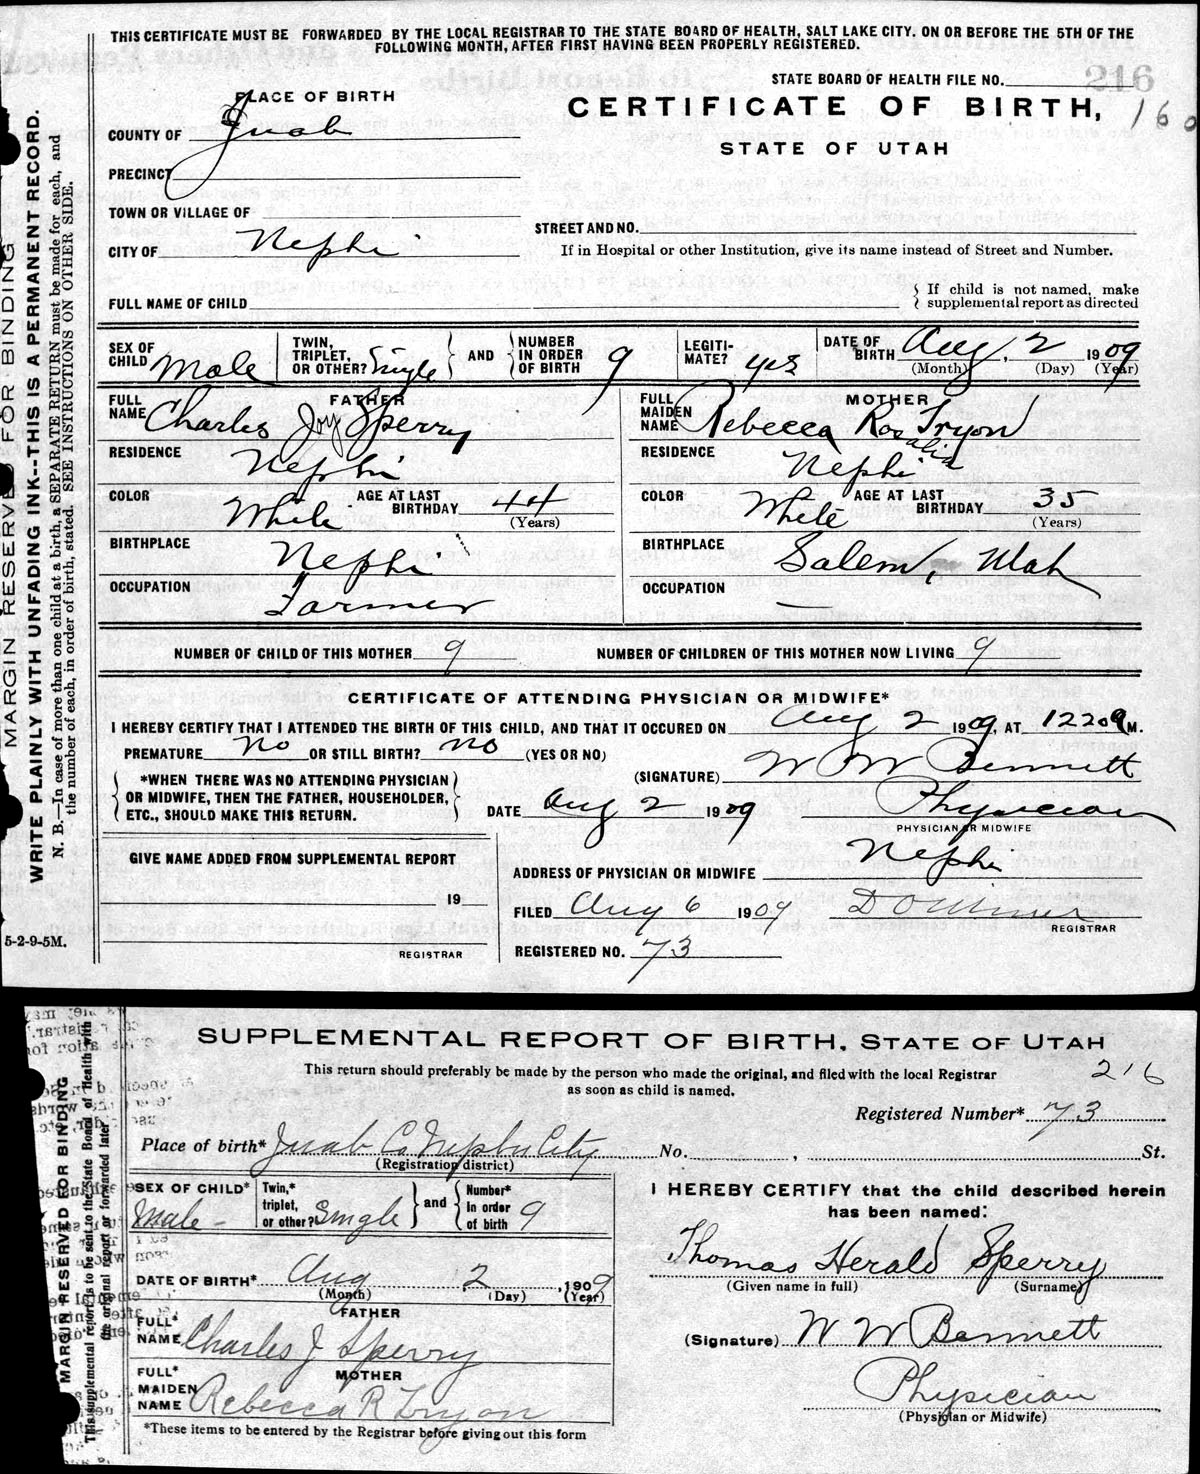 THIS CERTIFICATE MUST BE FORWARDED BY THE LOCAL REGISTRAR TO THE STATE BOARD OF HEALTH, SALT LAKE CITY. ON OR BEFORE THE 5TH OF THE
FOLLOWING MONTH, AFTER FIRST HAVING BEEN PROPERLY REGISTERED.
STATE BOARD OF HEALTH FILE NO. 216
PLACE OF BIRTH
CERTIFICATE OF BIRTH, 160
COUNTY OF Juab
STATE OF UTAH
PRECINCT
TOWN OR VILLAGE OF
STREET AND NO.
CITY OF Nephi
If in Hospital or other Institution, give its name instead of Street and Number.
FULL NAME OF CHILD
{ If child is not named, make
supplemental report as directed
SEX OF CHILD Male
TWIN, TRIPLET, OR OTHER? Single
AND
NUMBER IN ORDER OF BIRTH 9
LEGITI-MATE? yes
DATE OF BIRTH Aug, 2 1909
(Month) (Day) (Year)
FATHER
FULL NAME Charles Joy Sperry
MOTHER
FULL MAIDEN NAME Rebecca Rosalia Tryon
RESIDENCE Nephi
RESIDENCE Nephi
COLOR White
AGE AT LAST BIRTHDAY 44
(Years)
COLOR White
AGE AT LAST BIRTHDAY 35
(Years)
BIRTHPLACE Nephi
BIRTHPLACE Salem, Utah
OCCUPATION Farmer
OCCUPATION —
NUMBER OF CHILD OF THIS MOTHER 9
NUMBER OF CHILDREN OF THIS MOTHER NOW LIVING 9
CERTIFICATE OF ATTENDING PHYSICIAN OR MIDWIFE*
I HEREBY CERTIFY THAT I ATTENDED THE BIRTH OF THIS CHILD, AND THAT IT OCCURED ON Aug 2 1909, AT 1220 a M.
PREMATURE No OR STILL BIRTH? no (YES OR NO)
(SIGNATURE) W W Bennett
*WHEN THERE WAS NO ATTENDING PHYSICIAN
OR MIDWIFE, THEN THE FATHER, HOUSEHOLDER,
ETC., SHOULD MAKE THIS RETURN.
DATE Aug 2 1909
Physician
PHYSICIAN OR MIDWIFE
GIVE NAME ADDED FROM SUPPLEMENTAL REPORT
19
REGISTRAR
ADDRESS OF PHYSICIAN OR MIDWIFE Nephi
FILED Aug 6 1909
REGISTRAR
REGISTERED NO. 73
5-2-9-5M.
MARGIN RESERVED FOR BINDING
WRITE PLAINLY WITH UNFADING INK--THIS IS A PERMANENT RECORD.
N. B.—In case of more than one child at a birth, a SEPARATE RETURN must be made for each, and
the number of each, in order of birth, stated. SEE INSTRUCTIONS ON OTHER SIDE.
SUPPLEMENTAL REPORT OF BIRTH, STATE OF UTAH
This return should preferably be made by the person who made the original, and filed with the local Registrar
as soon as child is named.
216
Registered Number* 73
Place of birth* Juab Co Nephi City No. , St.
(Registration district)
SEX OF CHILD* Male -
Twin,* triplet, or other? Single
and
Number* In order of birth 9
I HEREBY CERTIFY that the child described herein
has been named:
Thomas Herald Sperry
(Given name in full) (Surname)
DATE OF BIRTH* Aug 2, 1909
(Month) (Day) (Year)
FATHER
FULL* NAME Charles J Sperry
(Signature) W W Bennett
MOTHER
FULL* MAIDEN NAME Rebecca R Tryon
Physician
(Physician or Midwife)
*These items to be entered by the Registrar before giving out this form
MARGIN RESERVED FOR BINDING
This supplemental report is to be sent to the State Board of Health with
the original report or forwarded later